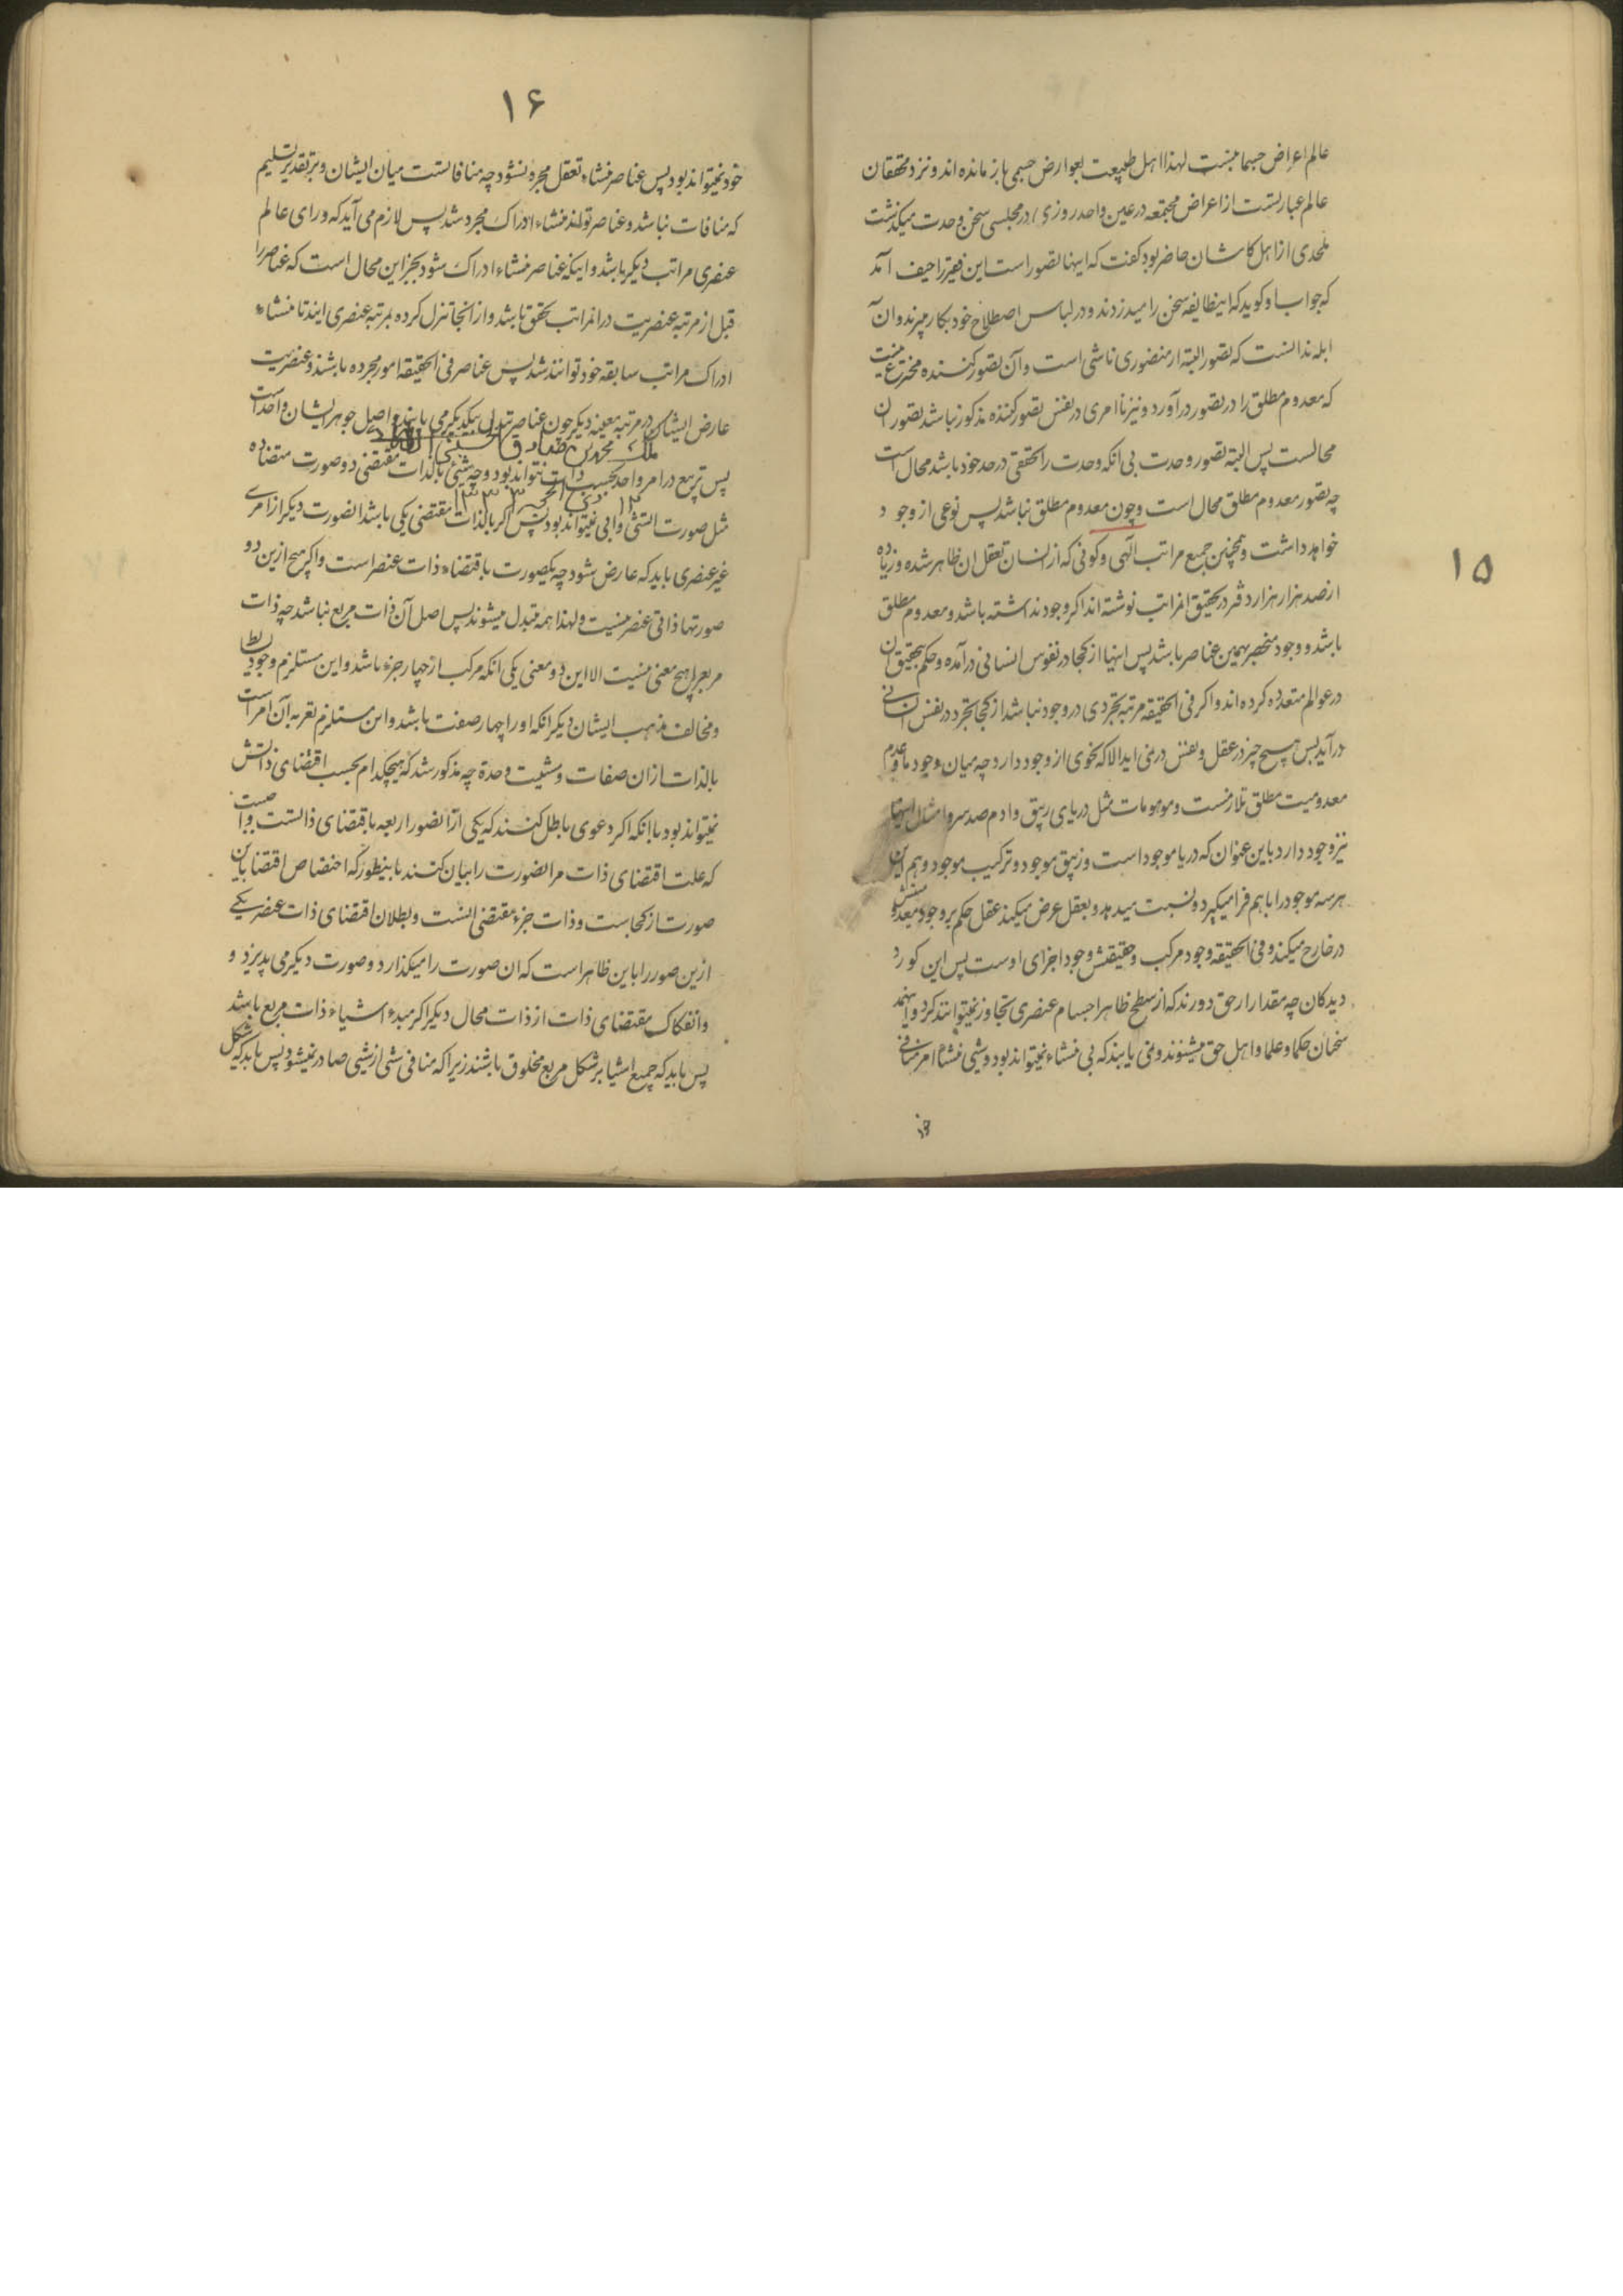 ۱۵
عالم اعراض جسمانیست لهذا اهل طبیعت بعوارض جسمی باز مانده اند و نزد محققان
عالم عبارتست از اعراض مجتمعه در عین واحد روزی در مجلسی سخن وحدت میکذشت
ملحدی از اهل کاشان حاضر بود کفت که اینها تصور است این فقیر را حیف آمد
که جواب او کوید که اینطایفه سخن را میدزدند و در لباس اصطلاح خود بکار میبرند و آن
ابله ندانست که تصور البته از متصوری ناشی است و آن تصور کننده مخترع نیست
که معدوم مطلق را در تصور درآورد و نیز تا امری در نفس تصور کننده مذکور نباشد تصور ان
محالست پس البته تصور وحدت بی انکه وحدت را تحققی در حد خود باشد محال است
چه تصور معدوم مطلق محال است و چون معدوم مطلق نباشد پس نوعی از وجود
خواهد داشت و همچنین جمیع مراتب الهی و کونی که از انسان تعقل ان ظاهر شده و زیاده
از صد هزار هزار دفتر در تحقیق امراتب نوشته اند اکر وجود نداشته باشد و معدوم مطلق
باشد و وجود منحصر بهمین عناصر باشد پس اینها از کجا در نفوس انسانی درآمده و حکم بتحقیق ان
در عوالم متعدده کرده اند و اکر فی الحقیقه مرتبه تجردی در وجود نباشد از کجا تجرد در نفس انسانی
درآید پس هیچ چیز در عقل و نفس در نمی اید الا که نحوی از وجود دارد چه میان وجود ما و عدم
معدومیت مطلق تلازمست و موهومات مثل دریای زیبق و ادم صد سر و امثال اینها
نیز وجود دارد باین عنوان که دریا موجود است و زیبق موجود و ترکیب موجود و هم این
هر سه موجود را با هم فرا میکیرد و نسبت میدهد و بعقل عرض میکند عقل حکم بر وجود
در خارج میکند و فی الحقیقه وجود مرکب و حقیقتش وجود اجزای اوست پس این کور
دیدکان چه مقدار از حق دورند که از سطح ظاهر اجسام عنصری تجاوز نمیتوانند کرد و اینهمه
سخنان حکما و علما و اهل حق میشنوند و نمی یابند که بی منشاء نمیتواند بود و شیی منشاء امر منافی
خود
۱۶
خود نمیتواند بود پس عناصر منشاء تعقل مجرد نشود چه منافاتست میان ایشان و بر تقدیر تسلیم
که منافات نباشد و عناصر تواند منشاء ادراک مجرد شد پس لازم می آید که ورای عالم
عنصری مراتب دیکر باشد و اینکه عناصر منشاء ادراک شود بجز این محال است که عناصر را
قبل از مرتبه عنصریت در انمراتب تحقق باشد و از انجا تنزل کرده بمرتبه عنصری ایند تا منشاء
ادراک مراتب سابقه خود توانند شد پس عناصر فی الحقیقه امور مجرده باشند و عنصریت
عارض ایشان در مرتبه معینه دیکر چون عناصر تبدل بیکدیکر می یابند و اصل جوهر ایشان واحد است
ملک محمد بن صادق الحسینی
پس تربیع در امر واحد بحسب ذات نتواند بود و چه شیئی بالذات مقتضی دو صورت متضاده
۱۲ ذی الحجه ۱۳۳۳
مثل صورت اتشی و ابی نمیتواند بود پس اکر بالذات مقتضی یکی باشد انصورت دیکر از امری
غیر عنصری باید که عارض شود چه یکصورت باقتضاء ذات عنصر است و اکر هیچ ازین دو
صورتها ذاتی عنصر نیست و لهذا همه متبدل میشوند پس اصل آن ذات مربع نباشد چه ذات
مربع را هیچ معنی نیست الا این دو معنی یکی انکه مرکب از چهار جزء باشد و این مستلزم وجود بسایط
و مخالف مذهب ایشان دیکر انکه او را چهار صفت باشد و این مستلزم تعریه آن امر است
بالذات از ان صفات و مثبت وحدة چه مذکور شد که هیچکدام بحسب اقتضای ذاتش
نمیتواند بود با انکه اکر دعوی باطل کنند که یکی از آنصور اربعه باقتضای ذاتست واجبست
که علت اقتضای ذات مر انصورت را بیان کنند باینطور که اختصاص اقتضا باین
صورت از کجاست و ذات جزء مقتضی انست و بطلان اقتضای ذات عنصر یکی
ازین صور را باین ظاهر است که ان صورت را میکذارد و صورت دیکر می پذیرد و
و انفکاک مقتضای ذات از ذات محال دیکر اکر مبدء اشیاء ذات مربع باشد
پس باید که جمیع اشیا بر شکل مربع مخلوق باشند زیرا که منافی شی از شیی صادر نمیشود پس باید که شکل